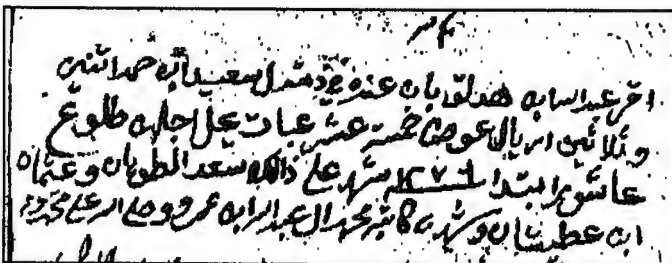 اقر عبدالله ابن هدلق بان عنده وفي ذمته ل سعيد ابن حمد اثنين
وثلاثين اريال عوض خمسة عشر عباة يحل اجلهن طلوع
عاشور ابتدا ١٢٧٦ شهد على ذالك سعد الطويان وعثمان
ابن عطيشان وشهد به كاتبه محمد ال عبدالله ابن عمرو وصلى الله على محمد